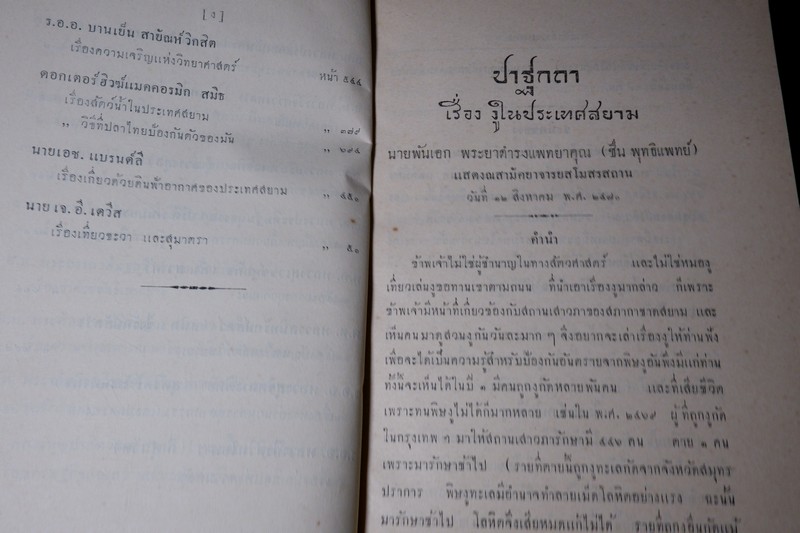 [ ง ]
ร.อ.อ. บานเย็น สายัณห์วิกสิต
เรื่องความเจริญแห่งวิทยาศาสตร์ หน้า ๕๔๔
ดอกเตอร์ฮิวฆ์แมคคอรมิก สมิธ
เรื่องสัตว์น้ำในประเทศสยาม ,, ๓๗๙
,, วิธีที่ปลาไทยป้องกันตัวของมัน ,, ๖๙๕
นายเอช. แบรนต์ลี
เรื่องเกี่ยวด้วยดินฟ้าอากาศของประเทศสยาม ,, ๔๕๐
นาย เจ. อี. เดวีส
เรื่องเที่ยวชะวา และสุมาตรา ,, ๕๐
ปาฐกถา
เรื่อง งูในประเทศสยาม
นายพันเอก พระยาดำรงแพทยาคุณ (ชื่น พุทธิแพทย์)
แสดงณสามัคยาจารยสโมสรสถาน
วันที่ ๑๒ สิงหาคม พ.ศ. ๒๔๗๐
คำนำ
ข้าพเจ้าไม่ใช่ผู้ชำนาญในทางสัตวศาสตร์ และไม่ใช่หมองู
เที่ยวเล่นงูขอทานเขาตามถนน ที่นำเอาเรื่องงูมากล่าว ก็เพราะ
ข้าพเจ้ามีหน้าที่เกี่ยวข้องกับสถานเสาวภาของสภากาชาดสยาม และ
เห็นคนมาดูสวนงูกันวันละมาก ๆ จึงอยากจะเล่าเรื่องงูให้ท่านฟัง
เพื่อจะได้เป็นความรู้สำหรับป้องกันอันตรายจากพิษงูอันพึงมีแก่ท่าน
ทั้งนี้จะเห็นได้ในปี ๑ มีคนถูกงูกัดหลายพันคน และที่เสียชีวิต
เพราะทนพิษงูไม่ได้ก็มากหลาย เช่นใน พ.ศ. ๒๔๖๙ ผู้ที่ถูกงูกัด
ในกรุงเทพ ฯ มาให้สถานเสาวภารักษามี ๔๔๖ คน ตาย ๑ คน
เพราะมารักษาช้าไป (รายที่ตายนี้ถูกงูทะเลกัดจากจังหวัดสมุทร
ปราการ พิษงูทะเลมีอำนาจทำลายเม็ดโลหิตอย่างแรง ฉะนั้น
มารักษาช้าไป โลหิตจึงเสียหมดแก้ไม่ได้ รายที่ถูกงูอื่นกัดแม้